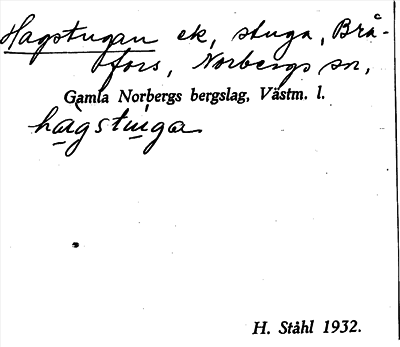 Hagstugan ek, stuga, Brå-
fors, Norbergs sn,
Gamla Norbergs bergslag, Västm. l.
hàgstuga
H. Ståhl 1932.